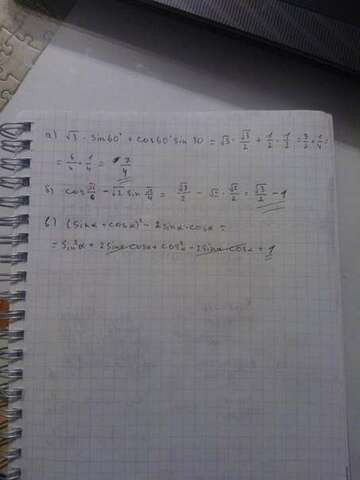 а) √3 · sin60° + cos60° sin 30 = √3 · √3/2 + 1/2 · 1/2 = 3/2 + 1/4 =
= 6/4 + 1/4 = 7/4
б) cos π/6 - √2 sin π/4 = √3/2 - √2 · √2/2 = √3/2 - 1
в) (sinα + cosα)² - 2sinα · cosα =
= sin²α + 2sinα · cosα + cos²α - 2sinα · cosα = 1